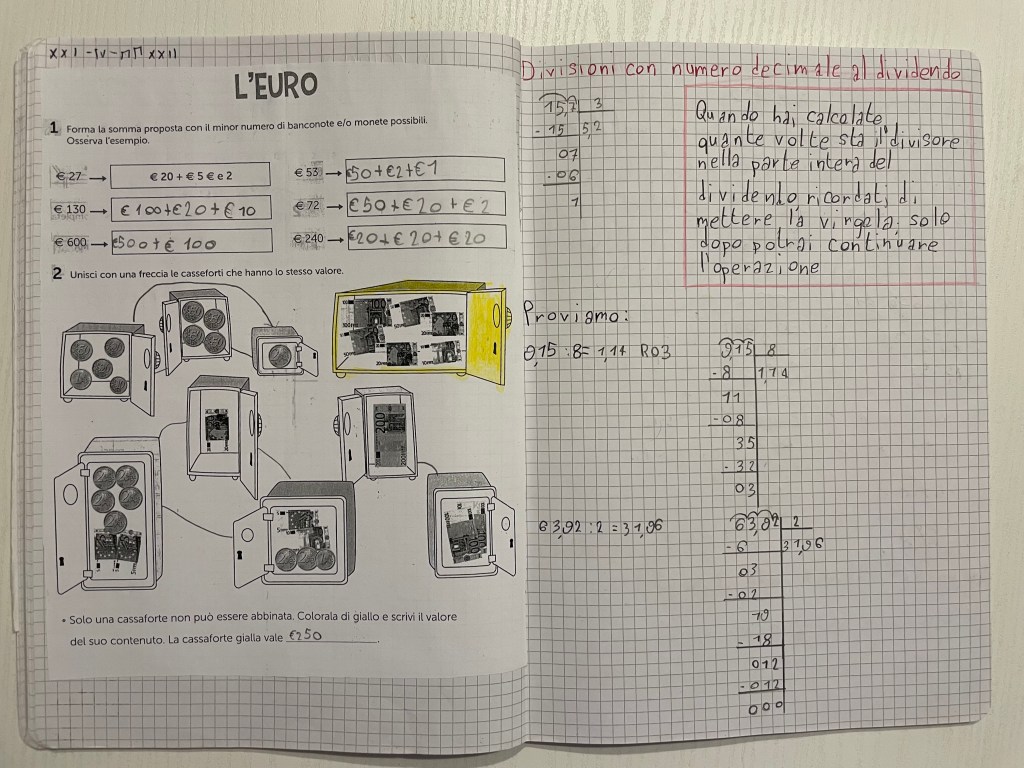 XXI-IV-MMXXII
L'EURO
1 Forma la somma proposta con il minor numero di banconote e/o monete possibili.
Osserva l'esempio.
€ 27 → € 20 + € 5 € e 2
€ 53 → €50+€2+€1
€ 130 → €100+€20+€10
€ 72 → €50+€20+€2
€ 600 → €500+€100
€ 240 → €20+€20+€20
2 Unisci con una freccia le casseforti che hanno lo stesso valore.
• Solo una cassaforte non può essere abbinata. Colorala di giallo e scrivi il valore
del suo contenuto. La cassaforte gialla vale €250.
Divisioni con numero decimale al dividendo
15,7 3
-15 5,2
07
-06
1
Quando hai calcolate
quante volte sta il divisore
nella parte intera del
dividendo ricordati di
mettere la virgola: solo
dopo potrai continuare
l'operazione
Proviamo:
9,15 :8= 1,14 R03
9,15 8
-8 1,14
11
-08
35
-32
03
63,92 : 2 = 31,96
63,92 2
-6 31,96
03
-02
19
-18
012
-012
000